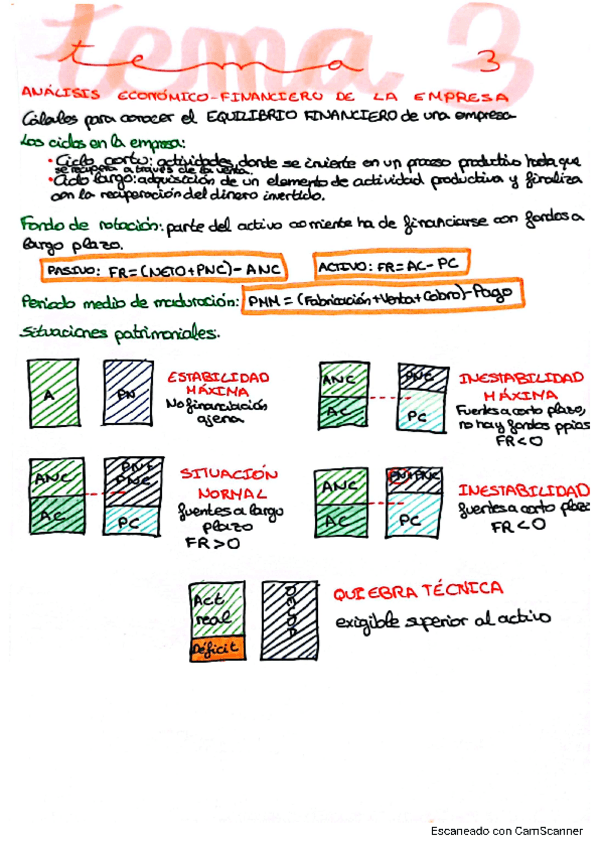 tema 3
tema 3
ANÁLISIS ECONÓMICO-FINANCIERO DE LA EMPRESA
Cálculos para conocer el EQUILIBRIO FINANCIERO de una empresa
Los ciclos en la empresa:
• Ciclo corto: actividades donde se invierte en un proceso productivo hasta que
se recupera a través de la venta.
• Ciclo largo: adquisición de un elemento de actividad productiva y finaliza
con la recuperación del dinero invertido.
Fondo de rotación: parte del activo corriente ha de financiarse con fondos a
largo plazo.
PASIVO: FR = (NETO+PNC) - ANC
ACTIVO: FR = AC - PC
Periodo medio de maduración: PMM = (Fabricación+Venta+Cobro)-Pago
Situaciones patrimoniales:
A
PN
ESTABILIDAD
MÁXIMA
No financiación
ajena
ANC
AC
PNC
PC
INESTABILIDAD
MÁXIMA
Fuentes a corto plazo,
no hay fondos ppios
FR<0
ANC
AC
PN+
PNC
PC
SITUACIÓN
NORMAL
fuentes a largo
plazo
FR>0
ANC
AC
PN+PNC
PC
INESTABILIDAD
fuentes a corto plazo
FR<0
Act
real
Déficit
QUIEBRA TÉCNICA
exigible superior al activo
Escaneado con CamScanner